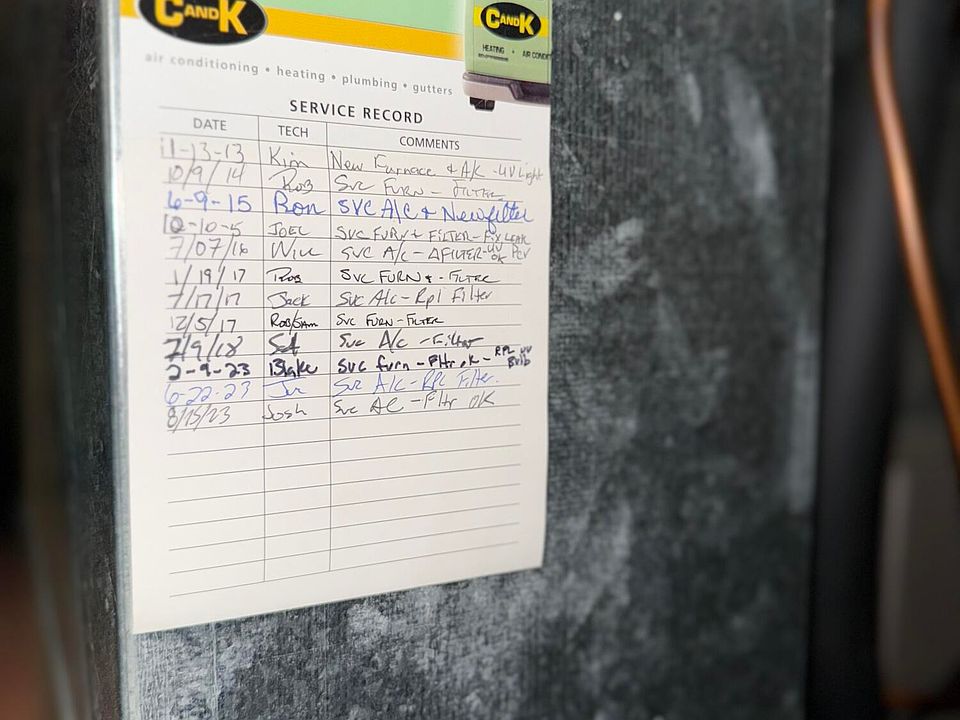 C AND K
C AND K
HEATING • AIR CONDIT
air conditioning • heating • plumbing • gutters
SERVICE RECORD
DATE TECH COMMENTS
11-13-13 Kim New Furnace & A/C - UV Light
10/9/14 Rob SVC FURN - FILTER
6-9-15 Ron SVC A/C + New filter
12-10-5 JOEL SVC FURN + FILTER - FIX LEAK
7/07/16 Will SVC A/C - ΔFILTER - UV OK
1/19/17 Rob SVC FURN + - FILTER
7/17/17 Jack SVC A/C - Rpl Filter
12/5/17 Rob/Sam SVC FURN - FILTER
7/9/18 SVC A/C - Filter
2-9-23 Blake SVC furn - Fltr ok - RPL UV Bulb
6-22-23 SVC A/C - RPL Filter.
8/15/23 Josh SVC AC - Fltr OK